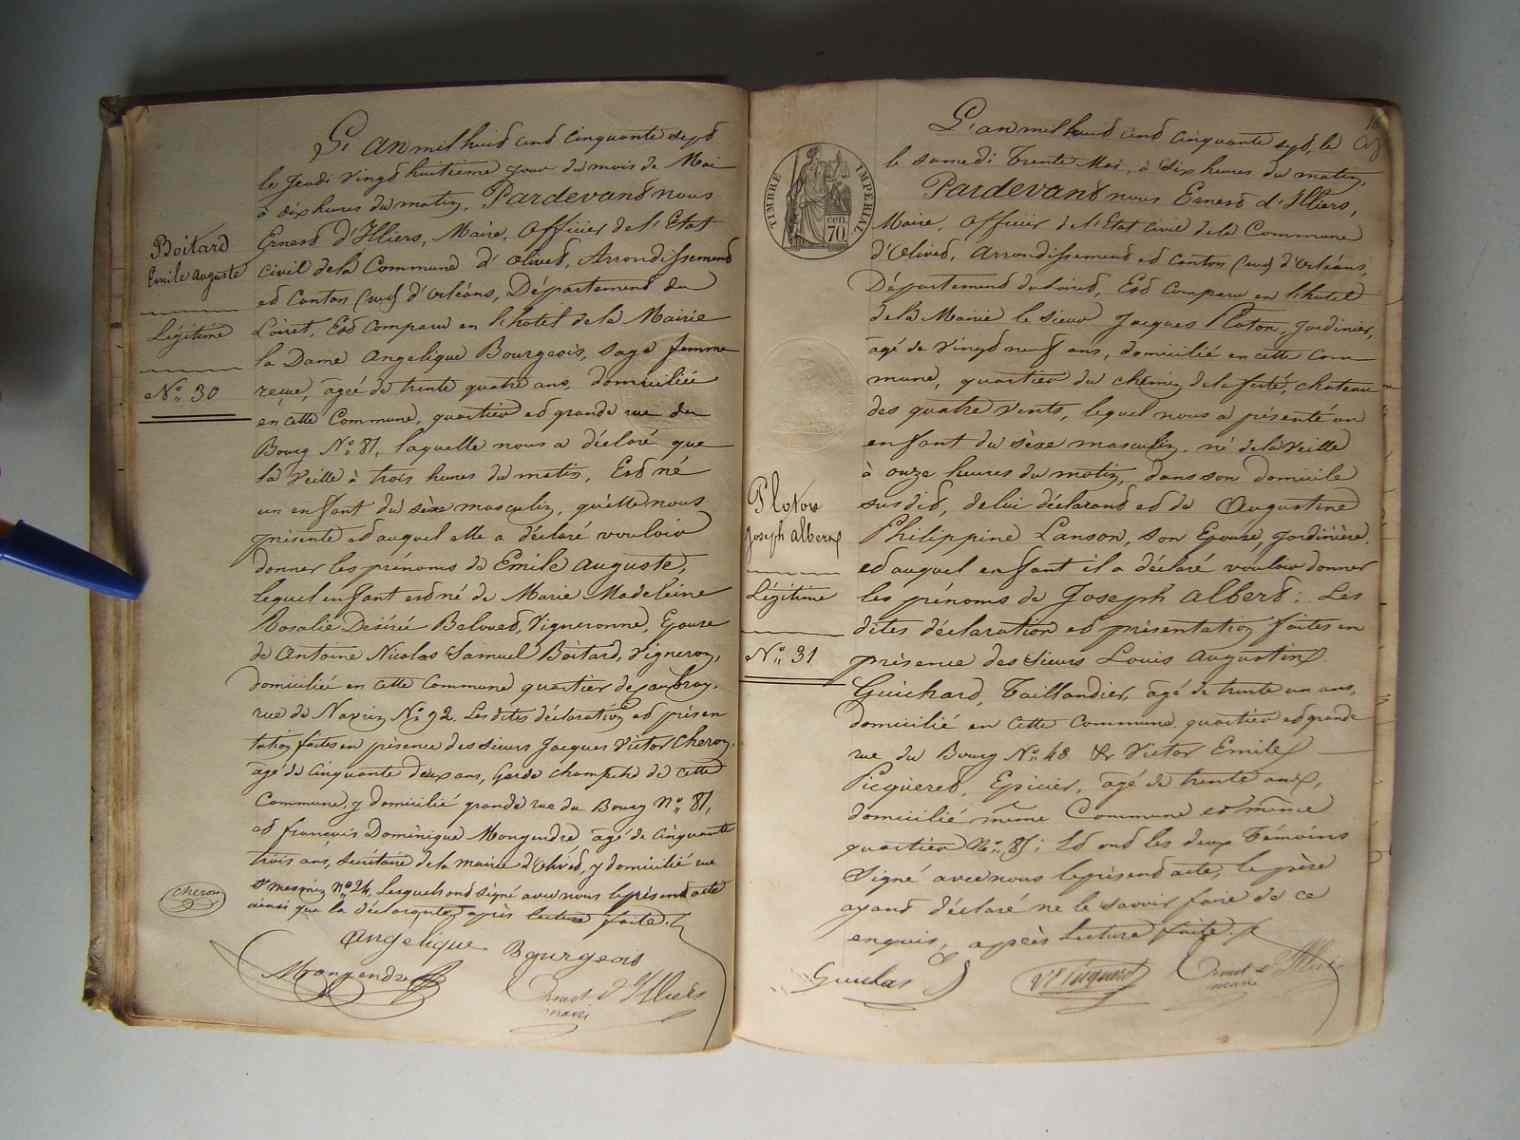 Boitard
Emile Auguste
Légitime
N° 30
L'an mil huit cent cinquante sept
le Jeudi Vingt huitieme jour du mois de Mai
à dix heures du matin, Pardevant nous
Ernest d'Illiers, Maire, Officier de l'Etat
civil de la Commune d'Olivet, Arrondissement
et Canton (sud) d'Orléans, Département du
Loiret, Est comparu en l'hotel de la Mairie
la Dame Angelique Bourgeois, sage femme
reçue, âgée de trente quatre ans, domiciliée
en cette Commune, quartier et grande rue du
Bourg N° 81, laquelle nous a déclaré que
la Veille à trois heures du matin, Est né
un enfant du sèxe masculin, qu'elle nous
présente et auquel elle a déclaré vouloir
donner les prénoms de Emile Auguste,
lequel enfant est né de Marie Madeleine
Rosalie Desirée Belouet, Vigneronne, Epouse
de Antoine Nicolas Samuel Boitard, Vigneron,
domicilié en cette Commune quartier de
rue de N° 92. Les dites déclaration et présen
tation faites en présence des sieurs Jacques Victor Cheron,
âgé de Cinquante deux ans, Garde champêtre de cette
Commune, y domicilié grande rue du Bourg N° 81,
et françois Dominique Mongendre âgé de Cinquante
trois ans, Secrétaire de la mairie d'Olivet, y domicilié rue
St Mesmin N° 24, Lesquels ont signé avec nous le présent acte
ainsi que la déclarante, après lecture faite.
Cheron
Angelique Bourgeois
Mongendre
Ernest d'Illiers
maire
TIMBRE IMPERIAL
70 CEN.
Plotou
Joseph Albert
Légitime
N° 31
L'an mil huit cent cinquante sept, le
le samedi Trente Mai, à dix heures du matin,
Pardevant nous Ernest d'Illiers,
Maire, Officier de l'Etat civil de la Commune
d'Olivet, Arrondissement et canton (sud) d'Orléans,
Département du Loiret, Est comparu en l'hotel
de la Mairie le sieur Jacques Ploton, Jardinier,
âgé de Vingt neuf ans, domicilié en cette Com
mune, quartier du chemin de la ferté, chateau
des quatre vents, lequel nous a présenté un
enfant du sèxe masculin, né de la Veille
à onze heures du matin, dans son domicile
susdit, de lui déclarant et de Augustine
Philippine Lanson, son Epouse, jardinière,
et auquel enfant il a déclaré vouloir donner
les prénoms de Joseph Albert; Les
dites déclaration et présentation faites en
présence des Sieurs Louis Augustin
Guichard, Taillandier, âgé de trente un ans,
domicilié en cette Commune quartier et grande
rue du Bourg N° 48 & Victor Emile
Picqueret, Epicier, âgé de trente ans,
domicilié même Commune et même
quartier N° 85; Et ont les deux Témoins
Signé avec nous le présent acte, le père
ayant déclaré ne le savoir faire de ce
enquis, après lecture faite.
Ernest d'Illiers
maire